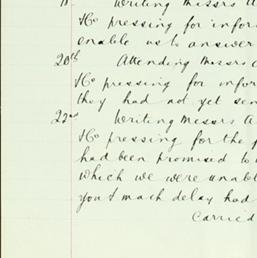 Writing Messrs A
&Co pressing for infor
enable us to answer
20th Attending Messrs
&Co pressing for infor
they had not yet sen
22nd Writing Messrs A
&Co pressing for the
had been promised to
which we were unabl
you & much delay had
Carried